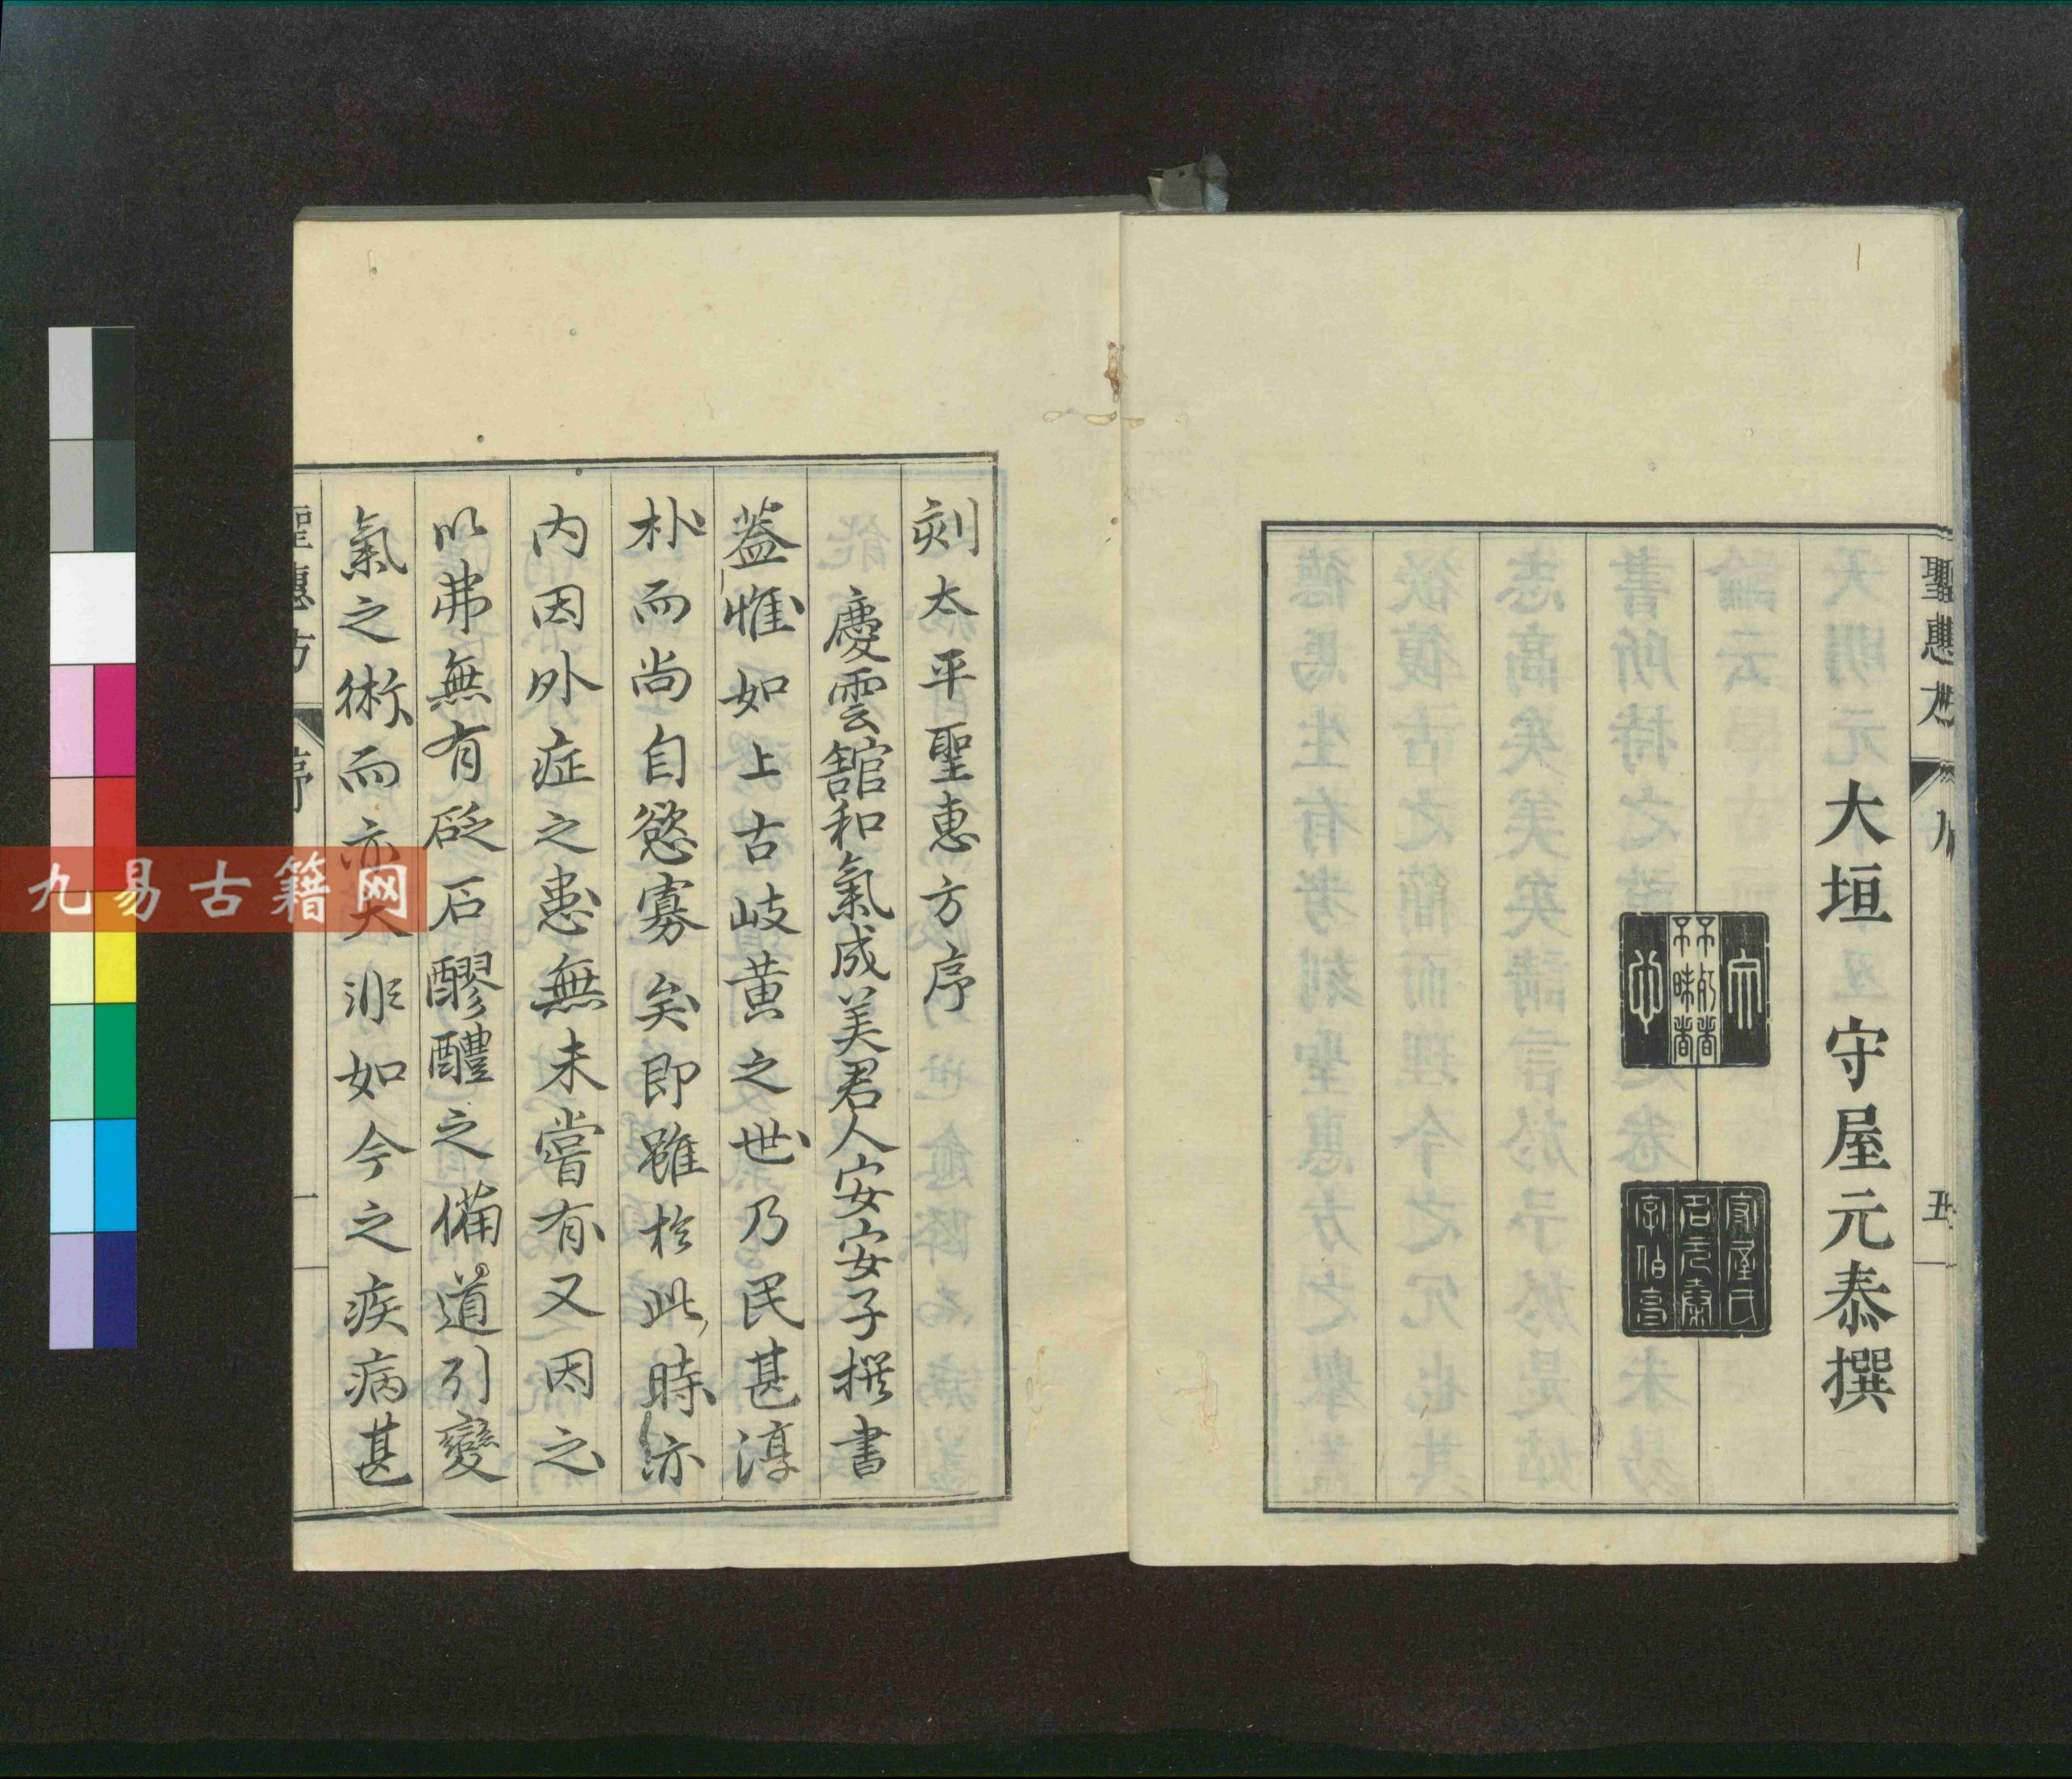 大垣 守屋元泰撰
刻太平聖惠方序
慶雲舘和氣成美君人安安子撰書
蓋惟如上古岐黃之世乃民甚淳
朴而尚自慾寡矣即雖於此時亦
内因外症之患無未嘗有又因之
以弗無有砭石醪醴之備道引變
氣之術而亦大非如今之疾病甚
聖惠方 序 一
九易古籍网